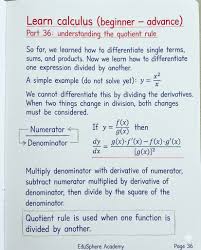 Learn calculus (beginner – advance)
Part 36: understanding the quotient rule
So far, we learned how to differentiate single terms,
sums, and products. Now we learn how to differentiate
one expression divided by another.
A simple example (do not solve yet): y = x²/x
We cannot differentiate this by dividing the derivatives.
When two things change in division, both changes
must be considered.
Numerator
Denominator
If y = f(x)/g(x) then
dy/dx = g(x)·f'(x) – f(x)·g'(x)/[g(x)]²
Multiply denominator with derivative of numerator,
subtract numerator multiplied by derivative of
denominator, then divide by the square of the
denominator.
Quotient rule is used when one function is
divided by another.
EduSphere Academy
Page 36